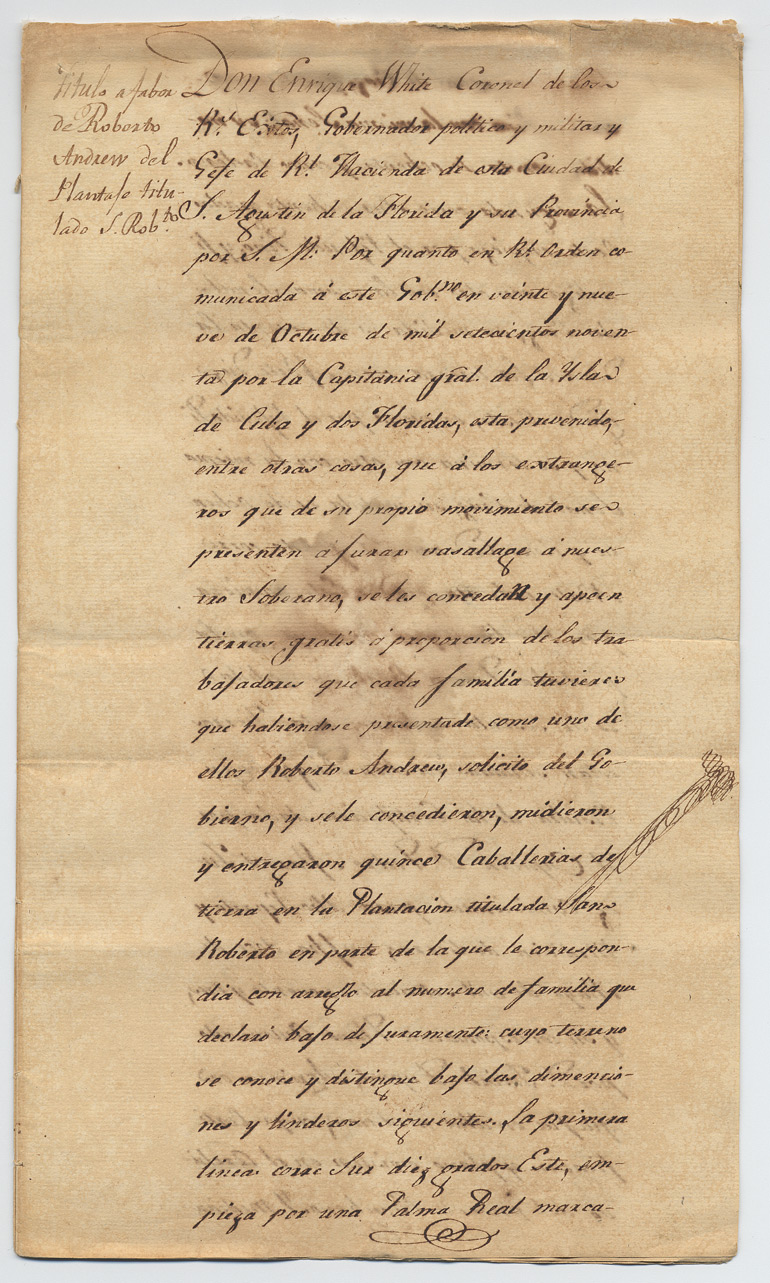 Titulo a fabor
de Roberto
Andrew del
Plantaje titu-
lado S. Rob.to
Don Enrique White Coronel de los
R.s Exõtos, Gobernador politico y militar y
Gefe de R.l Hacienda de esta Ciudad de
S. Agustin de la Florida y su Provincia
por S. M. Por quanto en R.l orden co
municada á este Gob.no en veinte y nue-
ve de Octubre de mil setecientos noven-
ta por la Capitania gral. de la Ysla
de Cuba y dos Floridas, esta prevenido,
entre otras cosas, que á los extrange-
ros que de su propio movimiento se
presenten á jurar vasallage á nues-
tro Soberano, se les concedan y apeen
tierras gratis á proporcion de los tra
bajadores que cada familia tuviere
que habiendose presentado como uno de
ellos Roberto Andrew, solicito del Go-
bierno, y sele concedieron, midieron
y entregaron quince Caballerias de
tierra en la Plantacion titulada San
Roberto en parte de la que le correspon-
dia con arreglo al numero de familia que
declaró bajo de juramento: cuyo terreno
se conoce y distingue bajo las dimencio-
nes y linderos siguientes. la primera
linea corre Sur diez grados Este, em-
pieza por una Palma Real marca-